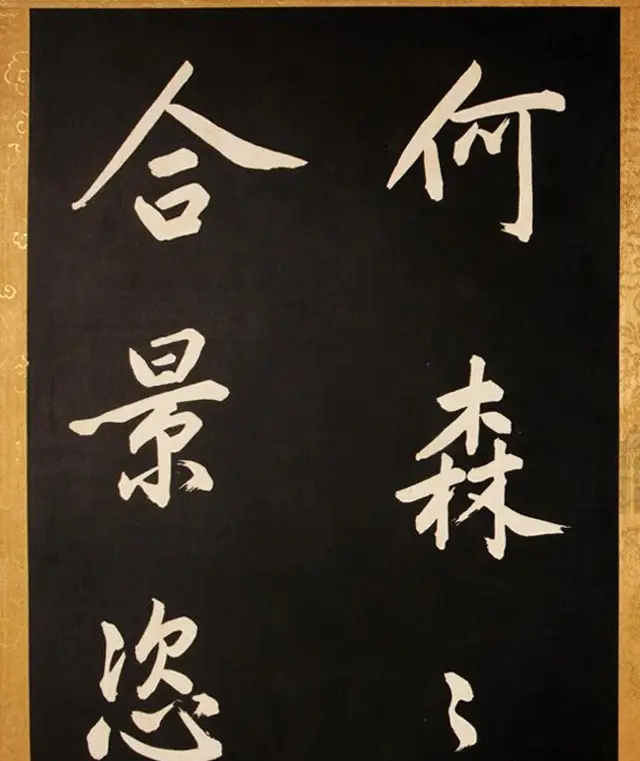 何森〻
合景恣